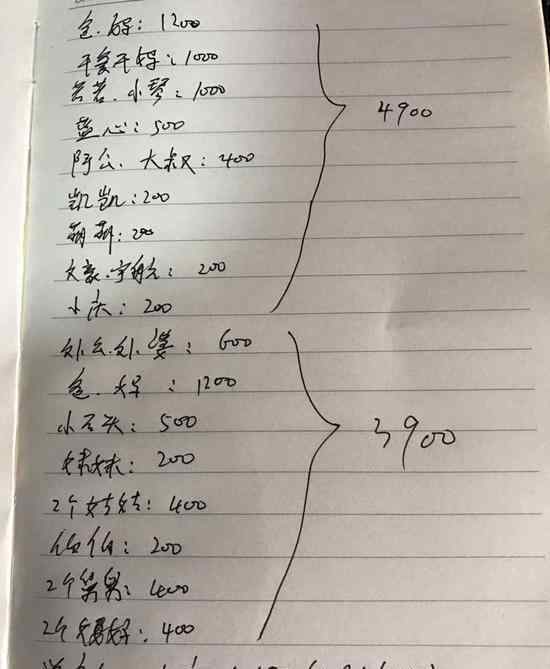 爸.妈: 1200
干爸干妈: 1000
爷爷.小琴: 1000
蓝心: 500
阿公. 大叔: 400
凯凯: 200
萌萌: 200
文豪.宇航: 200
小庆: 200
4900
外公.外婆: 600
爸.妈: 1200
小石头: 500
妹妹: 200
2个姑姑: 400
伯伯: 200
2个舅舅: 400
2个舅妈: 400
3900